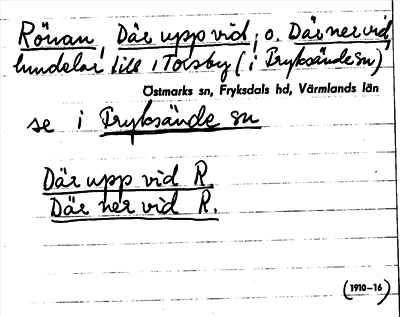 Rönan, Där uppvid, o. Där ner vid,
lundelar till 1 Torsby (i Fryksände sn)
Östmarks sn, Fryksdals hd, Värmlands län
se i Fryksände sn
Där upp vid R.
Där ner vid R.
(1910-16)